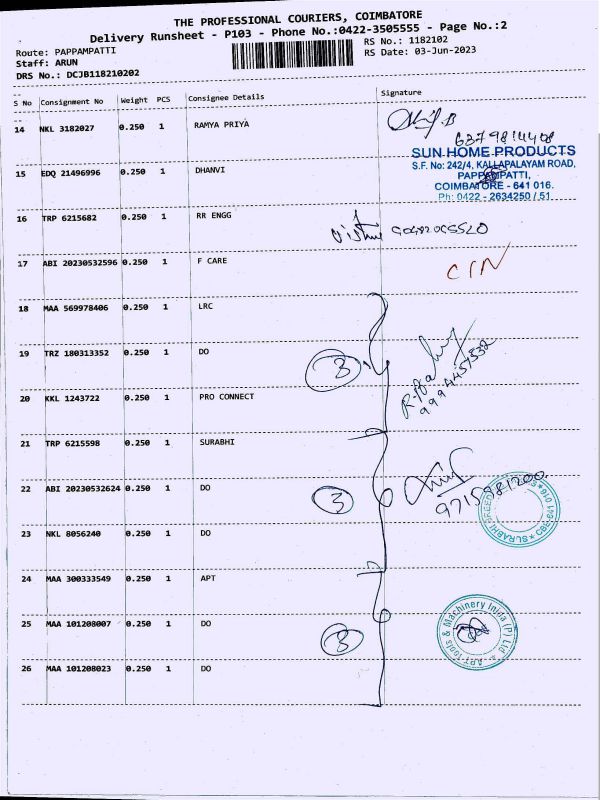 THE PROFESSIONAL COURIERS, COIMBATORE
Delivery Runsheet - P103 - Phone No.:0422-3505555 - Page No.:2
Route: PAPPAMPATTI
RS No.: 1182102
Staff: ARUN
RS Date: 03-Jun-2023
DRS No.: DCJB118210202
S No Consignment No Weight PCS Consignee Details Signature
14 NKL 3182027 0.250 1 RAMYA PRIYA
SUN HOME PRODUCTS
S.F. No: 242/4, KALLAPALAYAM ROAD,
15 EDQ 21496996 0.250 1 DHANVI
PAPPAMPATTI,
COIMBATORE - 641 016.
Ph: 0422 - 2634250 / 51
16 TRP 6215682 0.250 1 RR ENGG
17 ABI 20230532596 0.250 1 F CARE
18 MAA 569978406 0.250 1 LRC
19 TRZ 180313352 0.250 1 DO
3
9994457532
20 KKL 1243722 0.250 1 PRO CONNECT
21 TRP 6215598 0.250 1 SURABHI
22 ABI 20230532624 0.250 1 DO
3
9715981200
23 NKL 8056240 0.250 1 DO
24 MAA 300333549 0.250 1 APT
25 MAA 101208007 0.250 1 DO
3
APT Tools & Machinery India (P) Ltd
26 MAA 101208023 0.250 1 DO